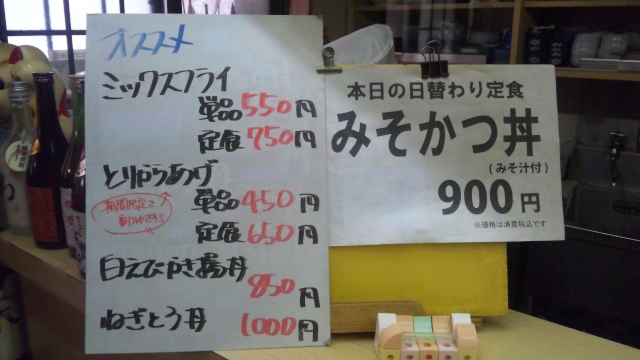 オススメ
ミックスフライ
単品 550円
定食 750円
とりからあげ
単品 450円
定食 650円
期間限定で
白えびかき揚丼
850円
ねぎとろ丼 1000円
本日の日替わり定食
みそかつ丼
(みそ汁付)
900円
※価格は消費税込です